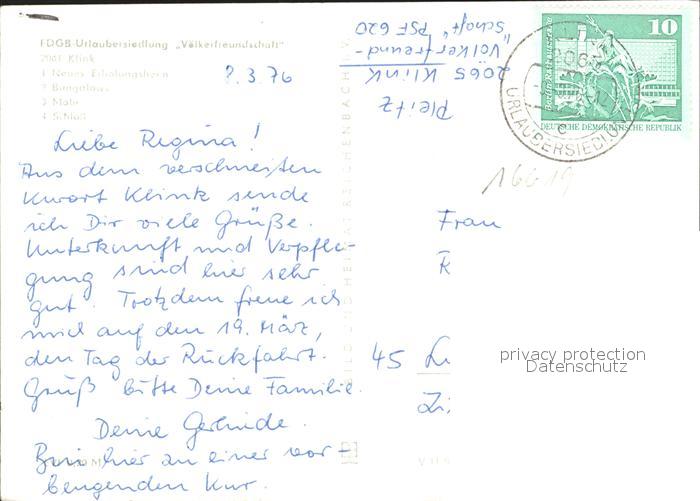 FDGB-Urlaubersiedlung „Völkerfreundschaft"
2061 Klink
1 Neues Erholungsheim
2 Bungalows
4 Schloß
8.3.76
Pleitz
2065 Klink
"Völkerfreund-
schaft" PSF 620
10
Berlin
DEUTSCHE DEMOKRATISCHE REPUBLIK
URLAUBERSIEDLUNG
c
16619
Liebe Regina!
Aus dem verschneiten
Kurort Klink sende
ich Dir viele Grüße.
Unterkunft und Verpfle-
gung sind hier sehr
gut. Trotzdem freue ich
mich auf den 19. März,
den Tag der Rückfahrt.
Grüß bitte Deine Familie.
Deine Gerlinde.
Bin hier an einer vor-
beugenden Kur.
Frau
R
45
privacy protection
Datenschutz